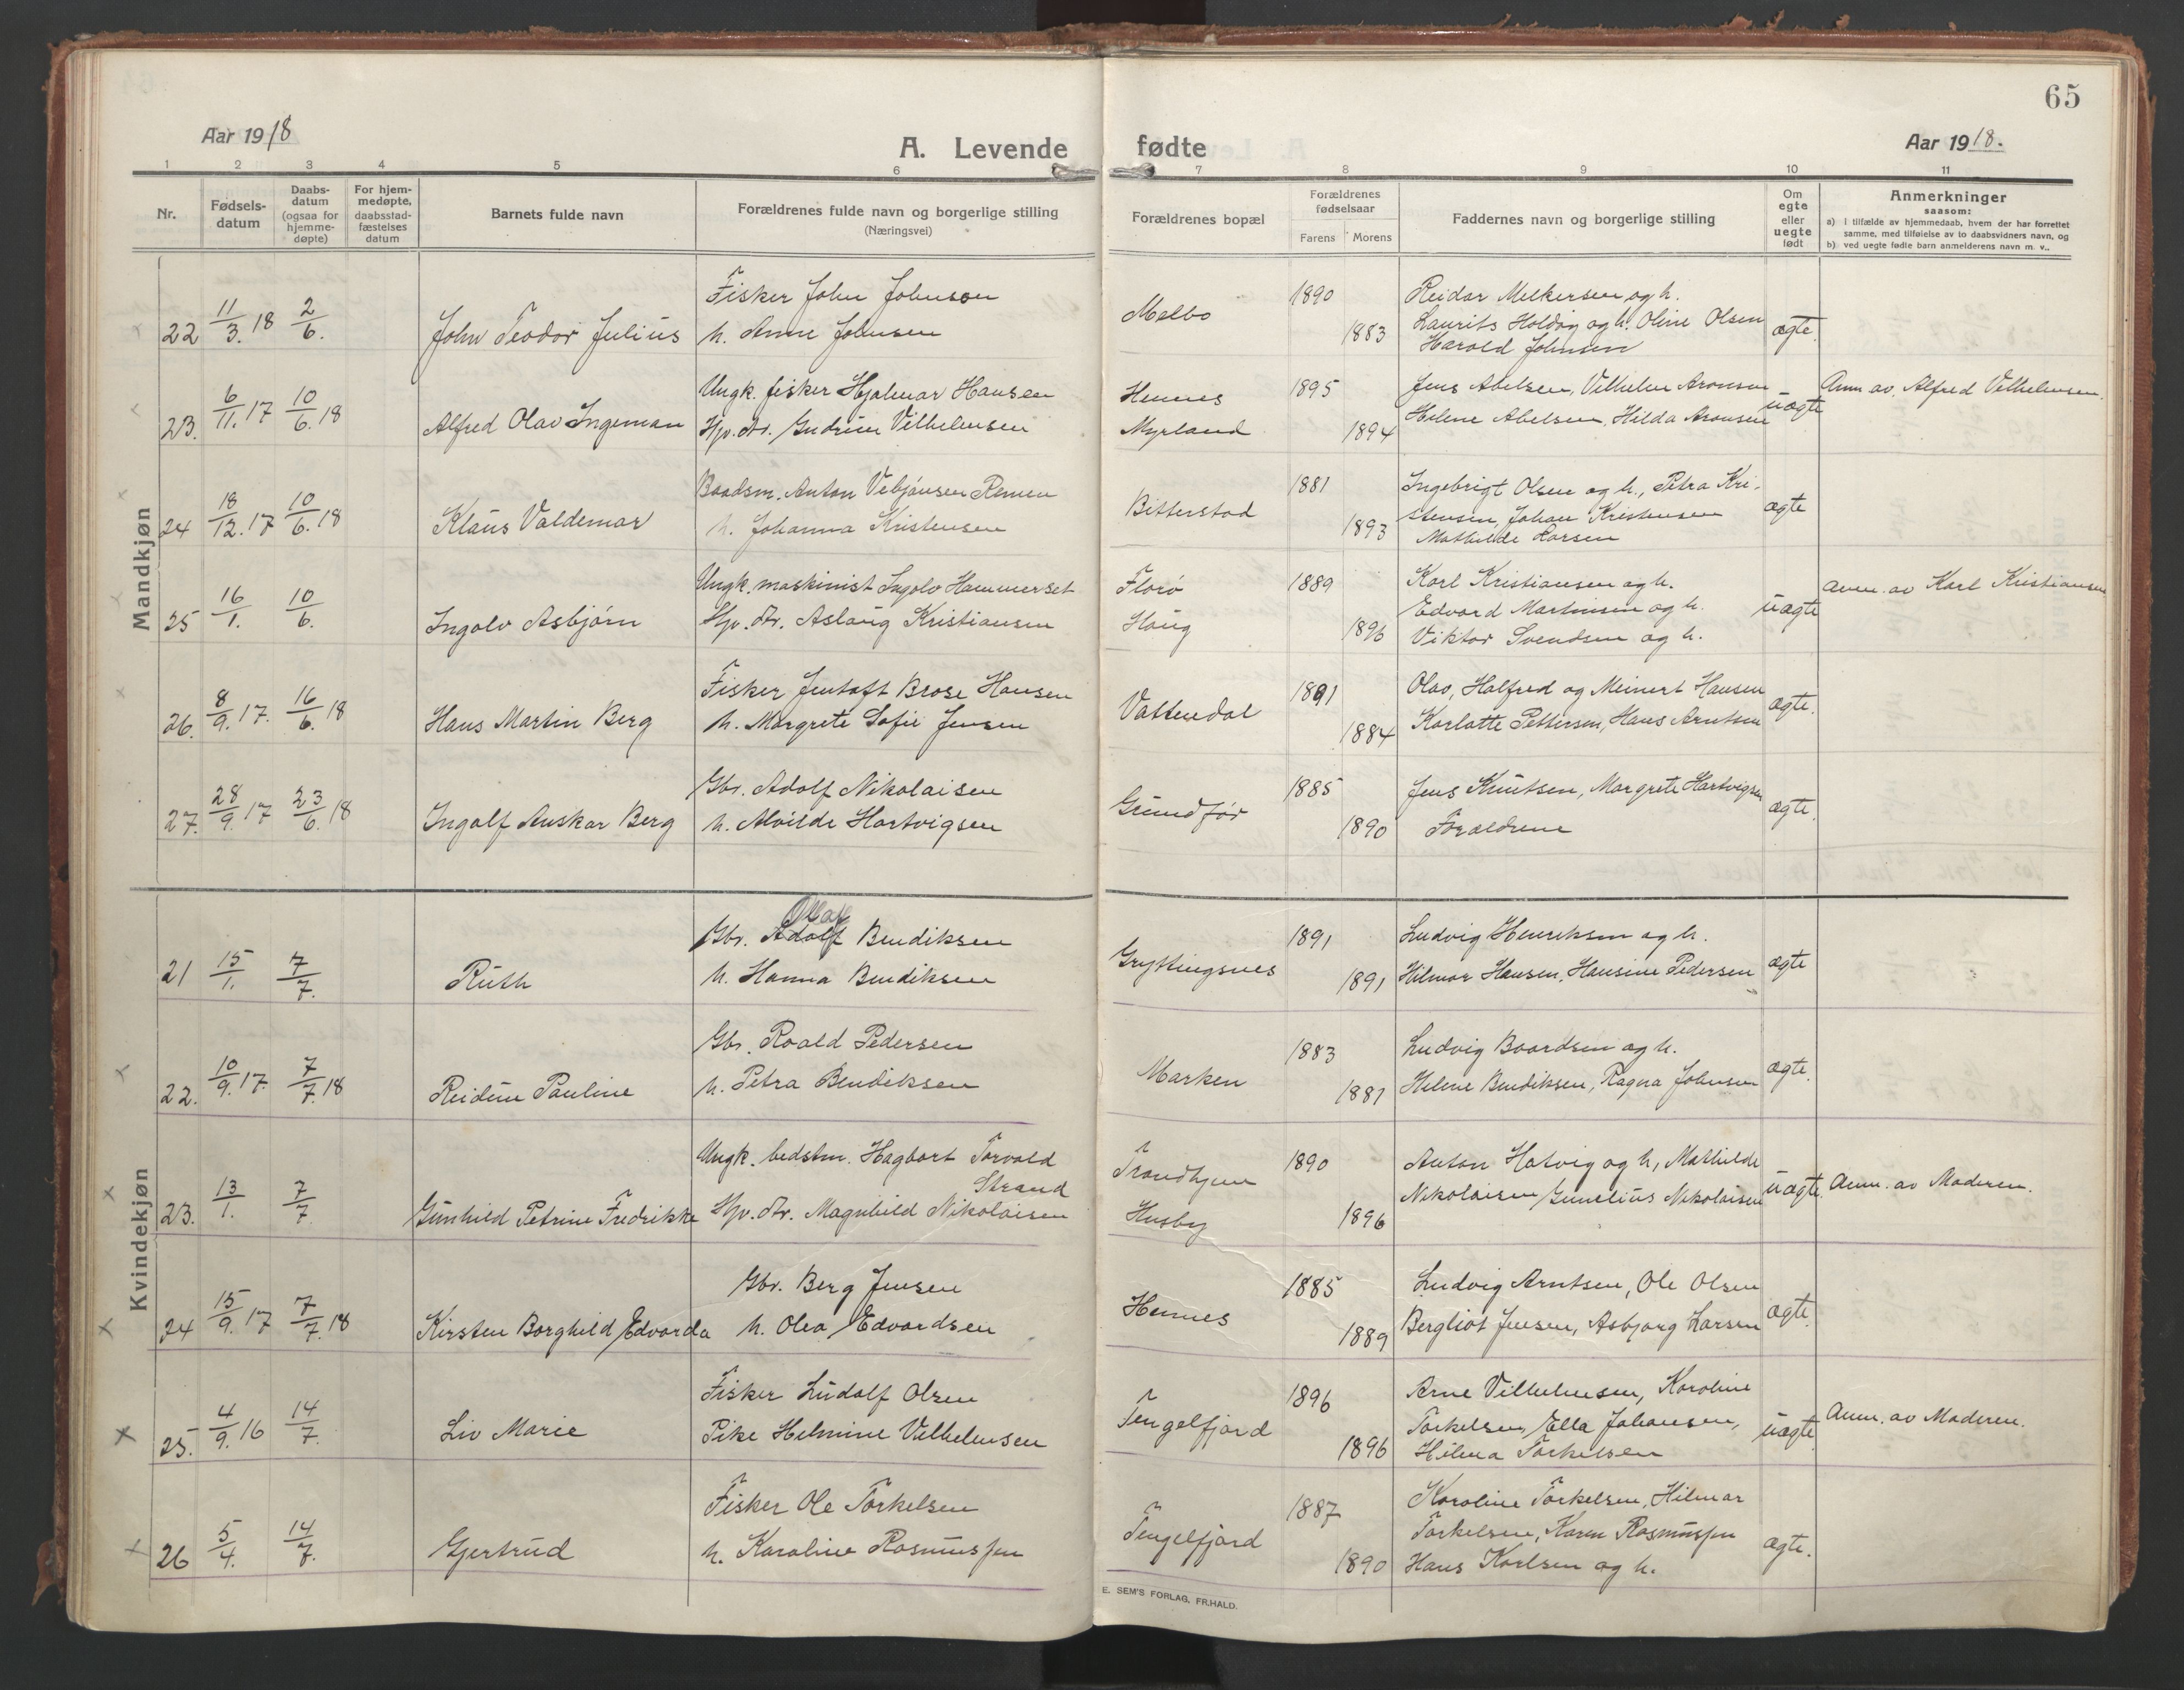 65
Aar 1918
A. Levende fødte
Aar 1918.
1 2 3 4 5 6 7 8 9 10 11
Nr.
Fødsels-
datum
Daabs-
datum
(ogsaa for
hjemme-
døpte)
For hjem-
medøpte,
daabsstad-
fæstelses
datum
Barnets fulde navn
Forældrenes fulde navn og borgerlige stilling
(Næringsvei)
Forældrenes bopæl
Forældrenes
fødselsaar
Farens Morens
Faddernes navn og borgerlige stilling
Om
egte
eller
uegte
født
Anmerkninger
saasom:
a) i tilfælde av hjemmedaab, hvem der har forrettet
samme, med tilføielse av to daabsvidners navn, og
b) ved uegte fødte barn anmelderens navn m. v..
Mandkjøn
22 11/3. 18 2/6. John Teodor Julius
Fisker John Johnsen
h. Anne Johnsen
Melbo
1890
1883
Reidar Melkersen og h.
Laurits Holdøg og h. Oline Olsen
Harald Johnsen
ægte.
23. 6/11. 17 10/6. 18 Alfred Olav Ingeman
Ungk. fisker Hjalmar Hansen
Hjv. dtr. Gudrun Vilhelmsen
Hennes
Myrland
1895
1894
Jens Abelsen, Vilhelm Aronsen
Helene Abelsen, Hilda Aronsen
uægte
Anm. av. Alfred Vilhelmsen.
24 18/12. 17 10/6. 18 Klaus Valdemar
Baadsm. Anton Vebjønsen Remen
h. Johanna Kristensen
Bitterstad
1881
1893
Ingebrigt Olsen og h., Petra Kri-
stensen, Johan Kristensen
Mathilde Larsen
ægte
25 16/1. 10/6. Ingolv Asbjørn
Ungk. maskinist Ingolv Hammerset
Hjv. dtr. Aslaug Kristiansen
Florø
Haug
1889
1896
Karl Kristiansen og h.
Edvard Martinsen og h.
Viktor Svendsen og h.
uægte
Anm. av Karl Kristiansen
26. 8/9. 17. 16/6. 18 Hans Martin Berg
Fisker Jentoft Brose Hansen
h. Margrete Sofie Jensen
Vattendal
1891
1884
Olav, Halfred og Meinert Hansen
Karlotte Pettersen, Hans Arntsen
ægte.
27. 28/9. 17 23/6. 18 Ingolf Anskar Berg
Gbr. Adolf Nikolaisen
h. Alvilde Hartvigsen
Grundfør
1885
1890
Jens Knutsen, Margrete Hartvigsen
Forældrene
ægte.
Kvindekjøn
21 15/1. 7/7. Ruth
Olaf
Gbr. Adolf Bendiksen
h. Hanna Bendiksen
Gryttingsnes
1891
1891
Ludvig Henriksen og h.
Hilmar Hansen, Hansine Pedersen
ægte
22. 10/9. 17. 7/7. 18 Reidun Pauline
Gbr. Roald Pedersen
h. Petra Bendiksen
Marken
1883
1881
Ludvig Baardsen og h.
Helene Bendiksen, Ragna Johnsen
ægte.
23. 13/1. 7/7. Gunhild Petrine Fredrikke
Ungk. bedstm. Hagbart Torvald
Strand
Hjv. dtr. Magnhild Nikolaisen
Trondhjem
Husby
1890
1896
Anton Hatvig og h, Mathilde
Nikolaisen Gunelius Nikolaisen
uægte.
Anm. av Moderen.
24 15/9. 17 7/7. 18 Kirsten Borghild Edvarda
Gbr. Berg Jensen
h. Olea Edvardsen
Hennes
1885
1889
Ludvig Arntsen, Ole Olsen
Bergliot Jensen, Asbjørg Larsen
ægte.
25. 4/9. 16 14/7. Liv Marie
Fisker Ludolf Olsen
Pike Helmine Vilhelmsen
Tengelfjord
1896
1896
Arne Vilhelmsen, Karoline
Torkelsen, Ella Johansen,
Hilma Torkelsen
uægte
Anm. av Moderen.
26 5/4. 14/7. Gjertrud
Fisker Ole Torkelsen
h. Karoline Rasmussen
Tengelfjord
1887
1890
Karoline Torkelsen, Hilmar
Torkelsen, Karen Rasmussen
Hans Karlsen og h.
ægte.
E. SEM'S FORLAG, FR.HALD.